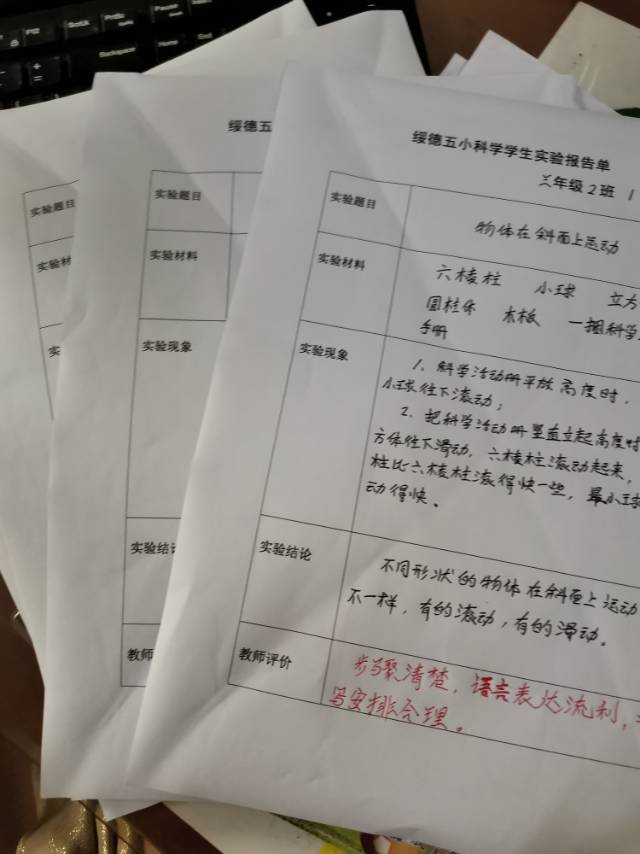 PrtSc
ScrLk
Backspace
Home
End
绥德五
实验题目
实验材
实验题目
实验材料
实验现象
实验结
教师
绥德五小科学学生实验报告单
三年级2班
实验题目 物体在斜面上运动
实验材料 六棱柱 小球 立方
圆柱体 木板 一捆科学
手册
实验现象 1、科学活动册平放高度时，
小球往下滚动；
2、把科学活动册竖直立起高度时
方体往下滑动，六棱柱滚动起来，
柱比六棱柱滚得快一些，最小球
动得快。
实验结论 不同形状的物体在斜面上运动
不一样，有的滚动，有的滑动。
教师评价 步骤清楚，语言表达流利，
写安排合理。